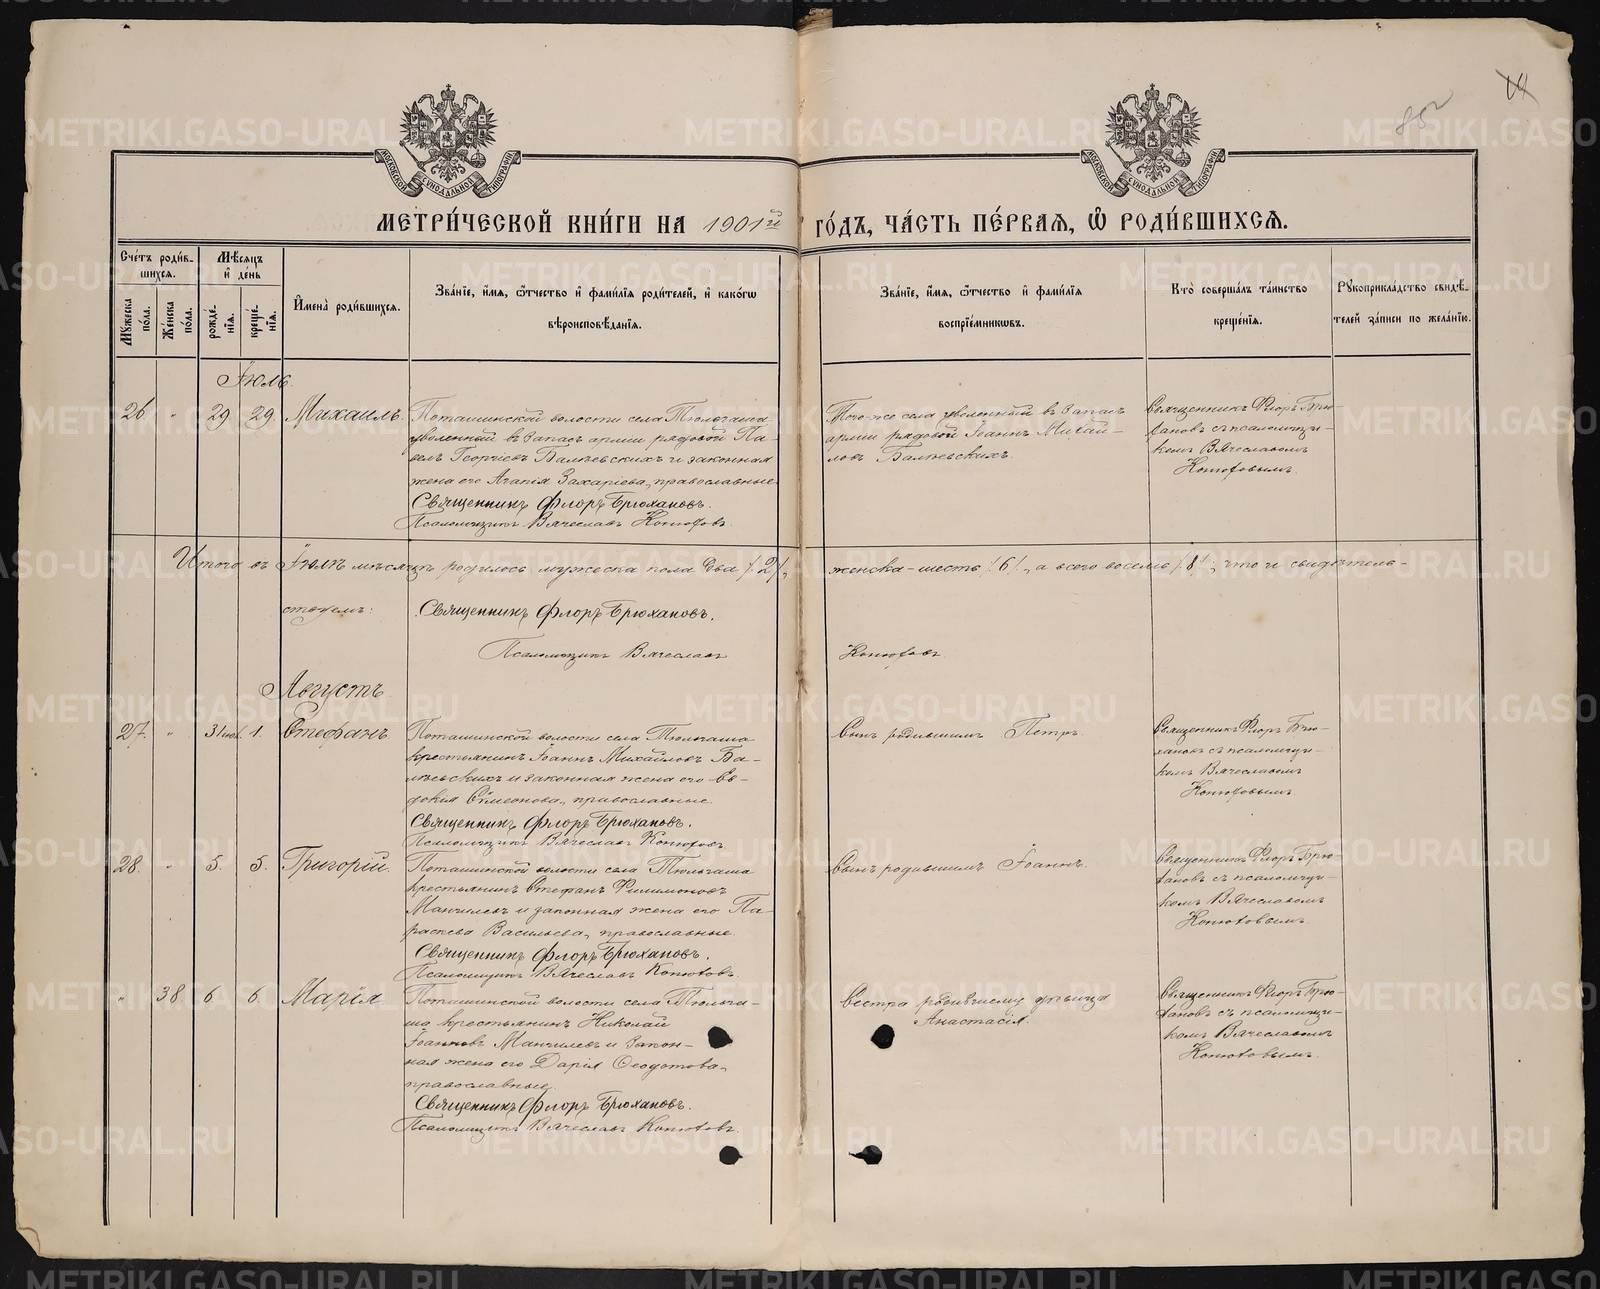 85 об
МЕТРИ́ЧЕСКОЙ КНИ́ГИ НА 1901й ГО́ДЪ, ЧА́СТЬ ПЕ́РВАЯ, Ѿ РОДИ́ВШИХСЯ.
Сче́тъ роди́в-
шихся.
Му́жеска по́ла.
Же́нска по́ла.
Мѣ́сяцъ и де́нь
рожде́-нїя.
креще́-нїя.
Имена̀ роди́вшихся.
Зва́нїе, и́мя, ѻ́тчество и фами́лїя роди́телей, и како́гѡ
вѣроисповѣ́данїя.
Зва́нїе, и́мя, ѻ́тчество и фами́лїя
воспрїе́мниковъ.
Кто̀ соверша́лъ та́инство
креще́нїя.
Рукоприкла́дство свидѣ́-
телей за́писи по жела́нїю.
Іюль.
26 " 29 29 Михаилъ.
Поташинской волости села Тюльгаша
уволенный въ запасъ армии рядовой Па-
велъ Георгіевъ Балѣевскихъ и законная
жена его Агапія Захаріева, православные.
Священникъ Флоръ Брюхановъ.
Псаломщикъ Вячеславъ Конюховъ.
Того-же села уволенный въ запасъ
армии рядовой Іоаннъ Михай-
ловъ Балѣевскихъ.
Священникъ Флоръ Брю-
хановъ съ псаломщи-
комъ Вячеславомъ
Конюховымъ.
Итого въ Іюлѣ мѣсяцѣ родилось мужеска пола два /2/, женска - шесть /6/, а всего восемь /8/, что и свидѣтель-
ствуемъ: Священникъ Флоръ Брюхановъ.
Псаломщикъ Вячеславъ Конюховъ.
Августъ.
27. " 31 июл. 1. Стефанъ.
Поташинской волости села Тюльгаша
крестьянинъ Іоаннъ Михайловъ Ба-
лѣевскихъ и законная жена его Ев-
докія Симеонова, православные.
Священникъ Флоръ Брюхановъ.
Псаломщикъ Вячеславъ Конюховъ.
Сынъ родившимъ Петръ.
Священникъ Флоръ Брю-
хановъ съ псаломщи-
комъ Вячеславомъ
Конюховымъ
28. " 5. 5. Григорій.
Поташинской волости села Тюльгаша
крестьянинъ Стефанъ Филимоновъ
Манчилевъ и законная жена его Па-
раскева Васильева, православные.
Священникъ Флоръ Брюхановъ.
Псаломщикъ Вячеславъ Конюховъ.
Сынъ родившимъ Іоаннъ.
Священникъ Флоръ Брю-
хановъ съ псаломщи-
комъ Вячеславомъ
Конюховымъ.
" 38 6 6. Марія
Поташинской волости села Тюльга-
ша крестьянинъ Николай
Іоанновъ Манчилевъ и закон-
ная жена его Дарія Ѳеодотова,
православные.
Священникъ Флоръ Брюхановъ.
Псаломщикъ Вячеславъ Конюховъ.
Сестра родившему дѣвица
Анастасія.
Священникъ Флоръ Брю-
хановъ съ псаломщи-
комъ Вячеславомъ
Конюховымъ.
METRIKI.GASO-URAL.RU